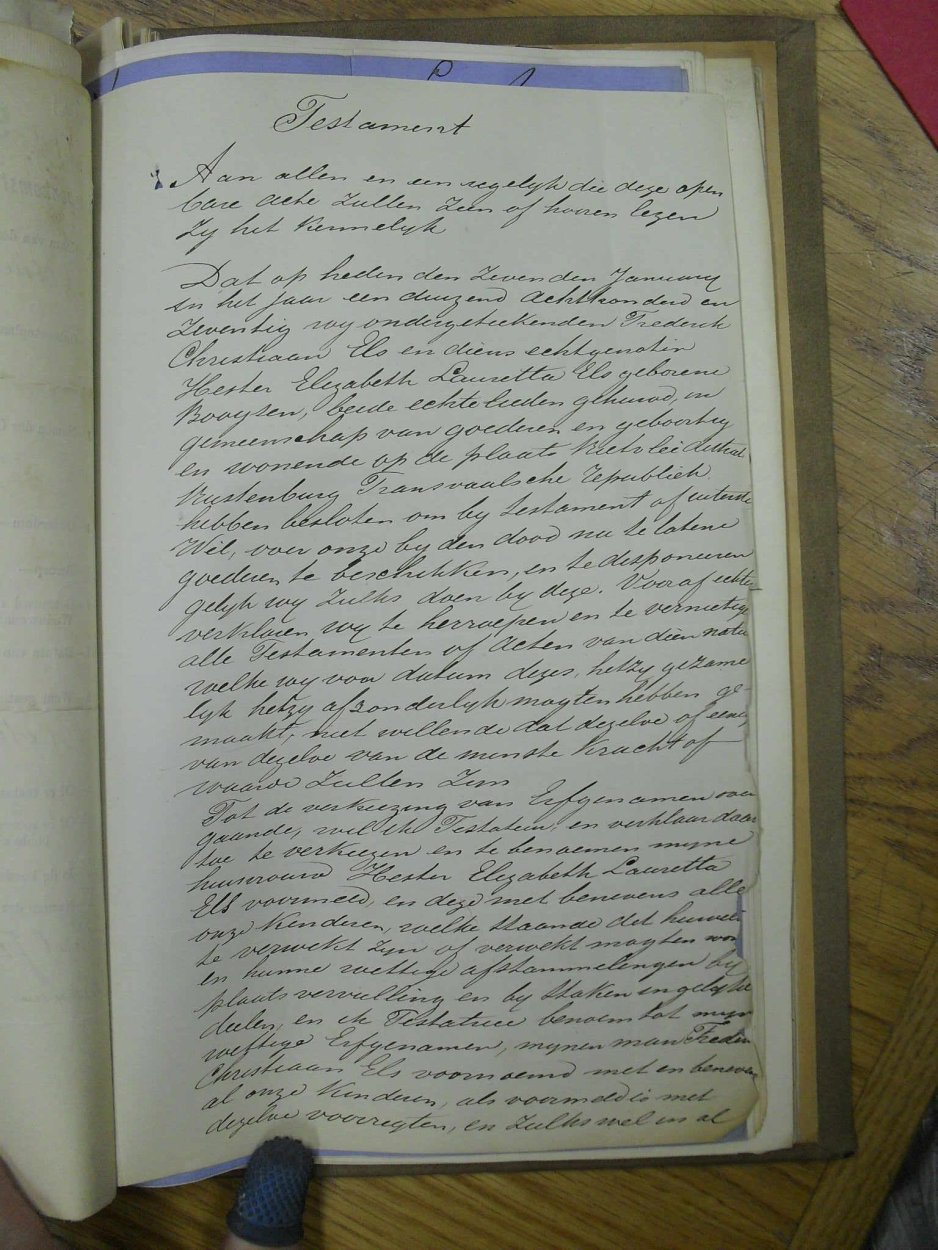 Testament
Aan allen en een iegelyk die deze open
bare acte zullen zien of hooren lezen
Zy het kennelyk
Dat op heden den zevenden January
in het jaar een duizend achthonderd en
Zeventig wy ondergeteekenden Frederik
Christiaan Els en diens echtgenotin
Hester Elizabeth Lauretta Els geborene
Booyzen, beide echtelieden gehuwd, in
gemeenschap van goederen en geboortig
en wonende op de plaats Rietvlei
Rustenburg Transvaalsche republiek
hebben besloten om by testament of uiterste
Wil, over onze by den dood na te latene
goederen te beschikken, en te disponeeren
gelyk wy zulks doen by deze. Vooraf echter
verklaren wy te herroepen en te vernietige
alle Testamenten of Acten van dien natu
welke wy voor datum dezes, hetzy gezame
lyk hetzy afzonderlyk mogten hebben ge-
maakt, niet willende dat dezelve of eenig
van dezelve van de minste kracht of
waarde zullen zyn
Tot de verkiezing van Erfgenamen over
gaande, wil ik Testateur, en verklaar daar
toe te verkiezen en te benoemen myne
huisvrouw Hester Elizabeth Lauretta
Els voormeld, en deze met benevens alle
onze kinderen, welke staande dit huwel
te verwekt zyn of verwekt mogten wor
en hunne wettige afstammelingen by
plaatsvervulling en by staken in gelyke
deelen, en ik Testatrice benoem tot myn
wettige Erfgenamen, mynen man Freder
Christiaan Els voornoemd met en beneven
al onze kinderen, als voormeld is met
dezelve voorregten, en zulks wel in al